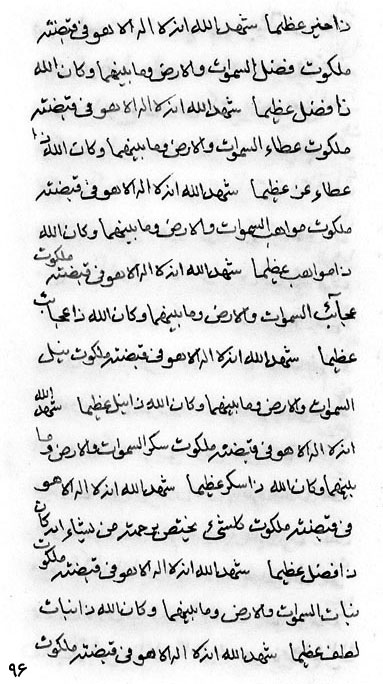 ذا خیر عظیما شهد الله انه لا اله الا هو فی قبضته
ملکوت فضل السموات والارض وما بینهما وکان الله
ذا فضل عظیما شهد الله انه لا اله الا هو فی قبضته
ملکوت عطاء السموات والارض وما بینهما وکان الله ذا
عطاء عظیما شهد الله انه لا اله الا هو فی قبضته
ملکوت مواهب السموات والارض وما بینهما وکان الله
ذا مواهب عظیما شهد الله انه لا اله الا هو فی قبضته ملکوت
عجآئب السموات والارض وما بینهما وکان الله ذا عجائب
عظیما شهد الله انه لا اله الا هو فی قبضته ملکوت نیل
السموات والارض وما بینهما وکان الله ذا نیل عظیما شهد الله
انه لا اله الا هو فی قبضته ملکوت سکر السموات والارض وما
بینهما وکان الله ذا سکر عظیما شهد الله انه لا اله الا هو
فی قبضته ملکوت کلشیء یختص برحمته من یشاء انه کان
ذا فضل عظیما شهد الله انه لا اله الا هو فی قبضته ملکوت
نبات السموات والارض وما بینهما وکان الله ذا نبات
لطف عظیما شهد الله انه لا اله الا هو فی قبضته ملکوت
۹۶